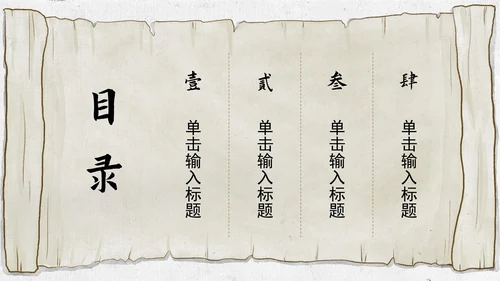 目录
壹
单击输入标题
贰
单击输入标题
叁
单击输入标题
肆
单击输入标题